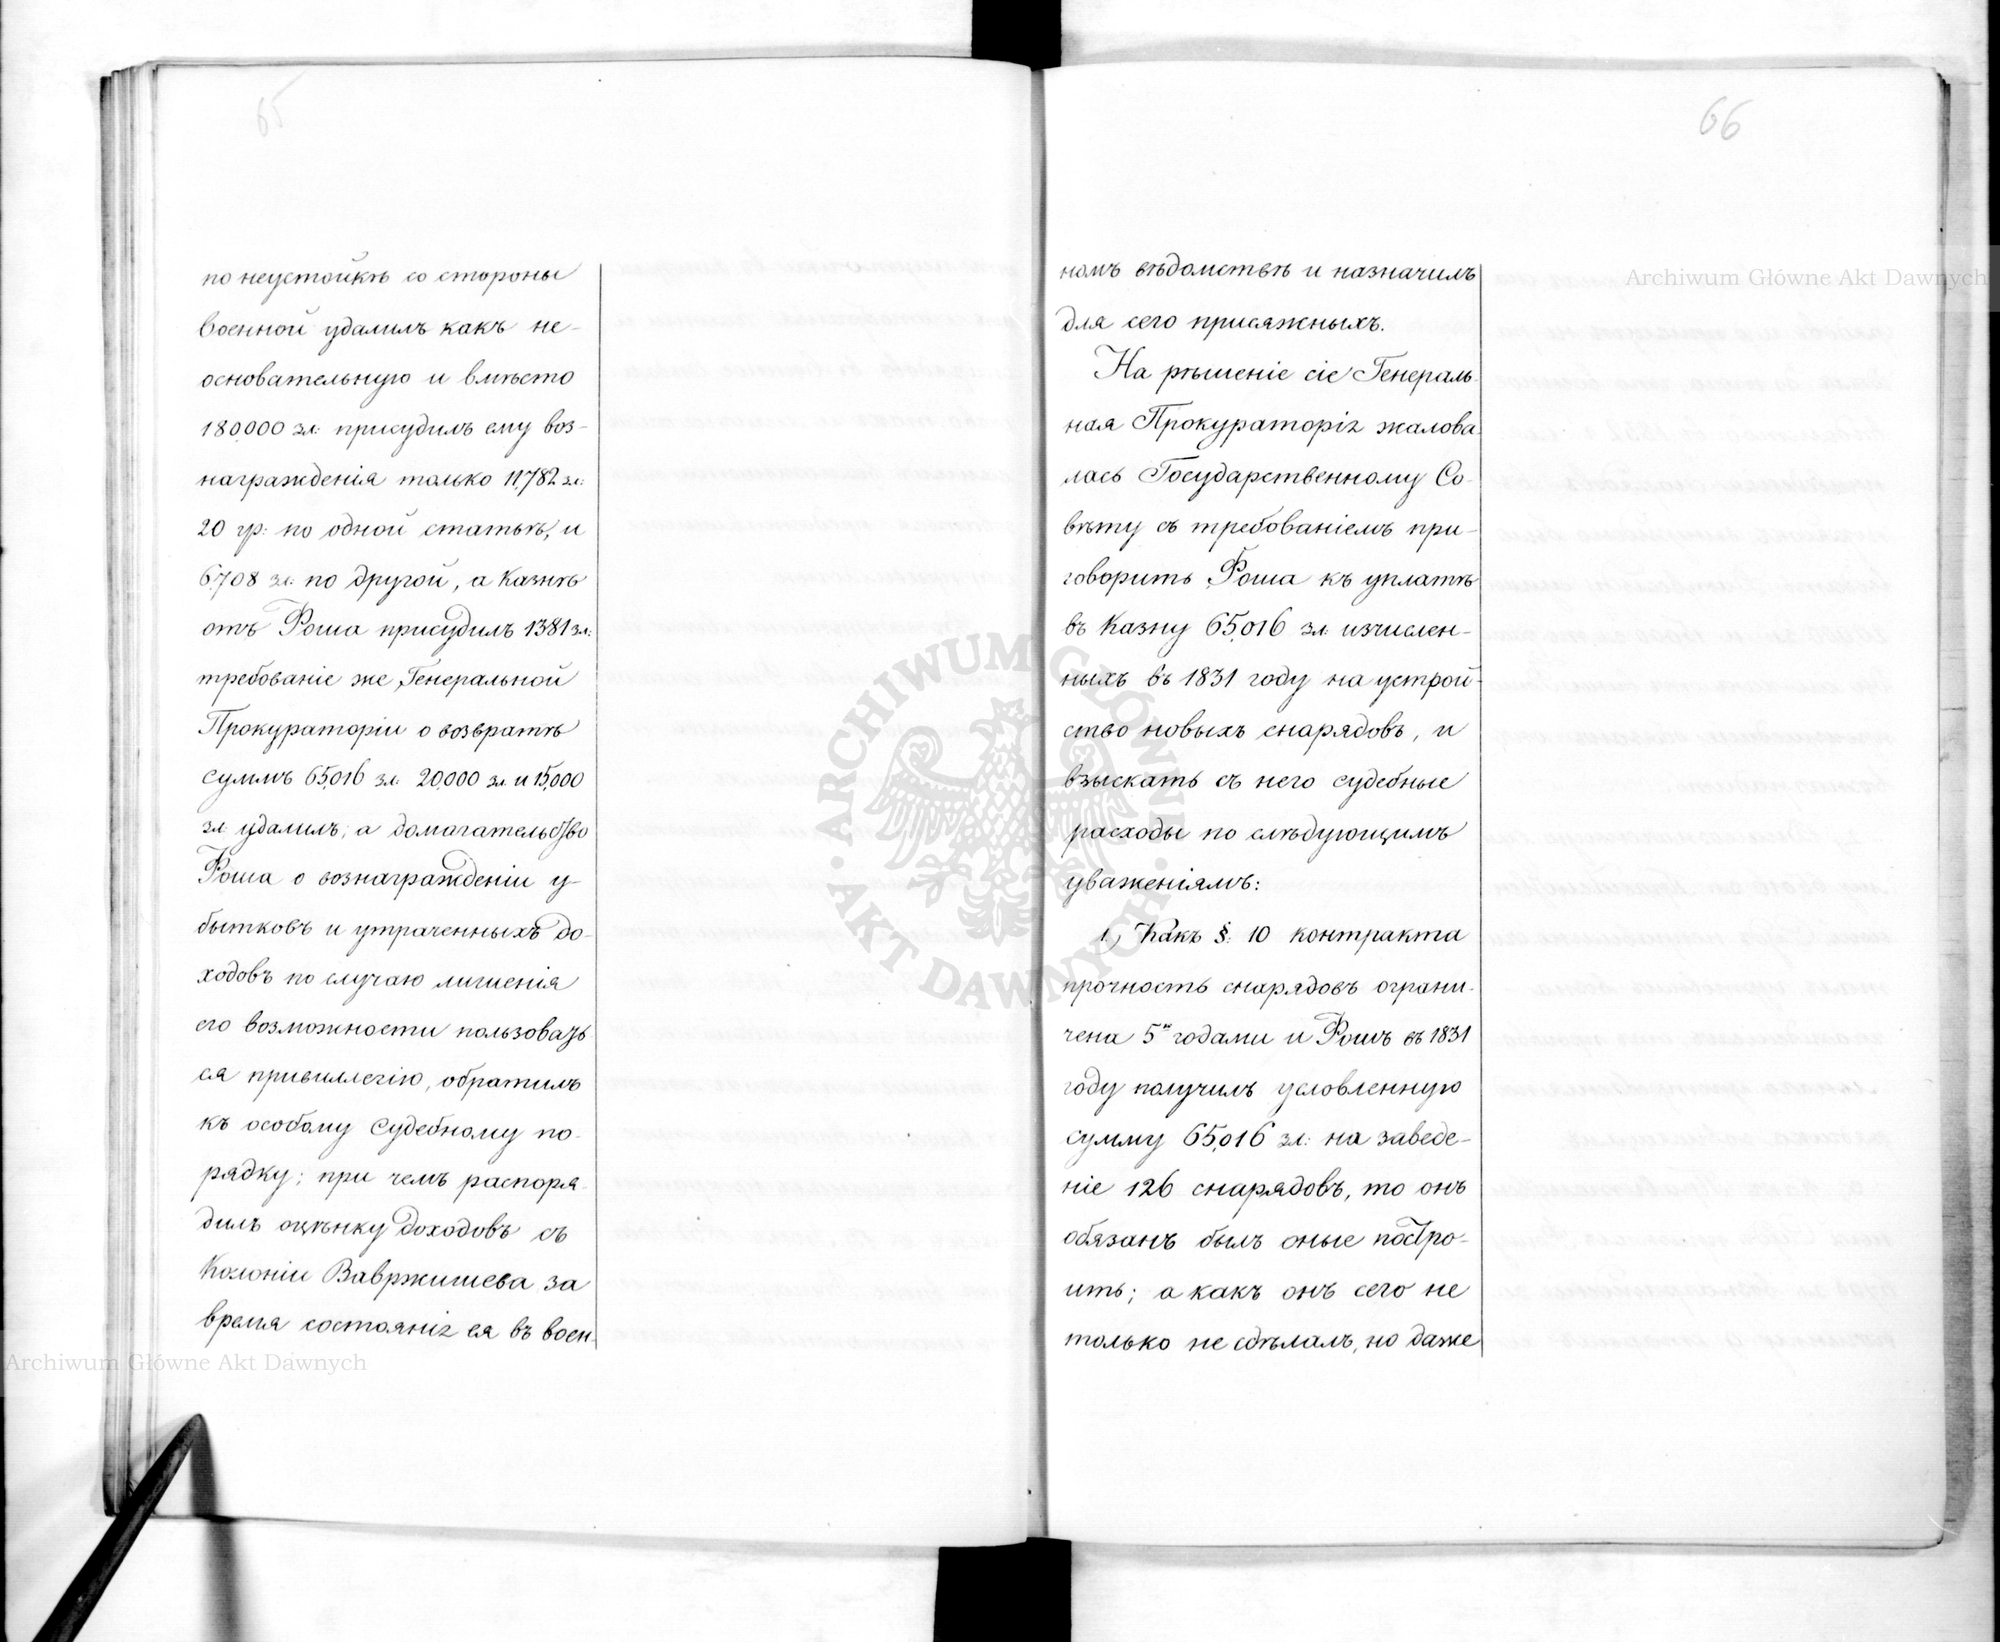 65
по неустойкѣ со стороны
военной удалилъ какъ не-
основательную и вмѣсто
180,000 зл: присудилъ ему воз-
награжденія только 11,782 зл:
20 гр: по одной статьѣ, и
6,708 зл: по другой, а Казнѣ
отъ Роша присудилъ 1381 зл:
требованіе же Генеральной
Прокураторіи о возвратѣ
суммъ 65,016 зл: 20,000 зл. и 15,000
зл: удалилъ, а домагательство
Роша о вознагражденіи у-
бытковъ и утраченныхъ до-
ходовъ по случаю лишенія
его возможности пользовать-
ся привиллегію, обратилъ
къ особому Судебному по-
рядку; при чемъ распоря-
дилъ оцѣнку доходовъ съ
Колоніи Вавржишева за
время состоянія ея въ воен-
66
номъ вѣдомствѣ и назначилъ
для сего присяжныхъ.
На рѣшеніе сіе Генераль-
ная Прокураторія жалова-
лась Государственному Со-
вѣту съ требованіемъ при-
говорить Роша къ уплатѣ
въ Казну 65,016 зл: изчислен-
ныхъ въ 1831 году на устрой-
ство новыхъ снарядовъ, и
взыскать съ него судебные
расходы по слѣдующимъ
уваженіямъ:
1.) Какъ §: 10 контракта
прочность снарядовъ ограни-
чена 5и годами и Рошъ въ 1831
году получилъ условленную
сумму 65,016 зл: на заведе-
ніе 126 снарядовъ, то онъ
обязанъ былъ оные постро-
ить; а какъ онъ сего не
только не сдѣлалъ, но даже
Archiwum Główne Akt Dawnych
ARCHIWUM GŁÓWNE · AKT DAWNYCH ·
Archiwum Główne Akt Dawnych